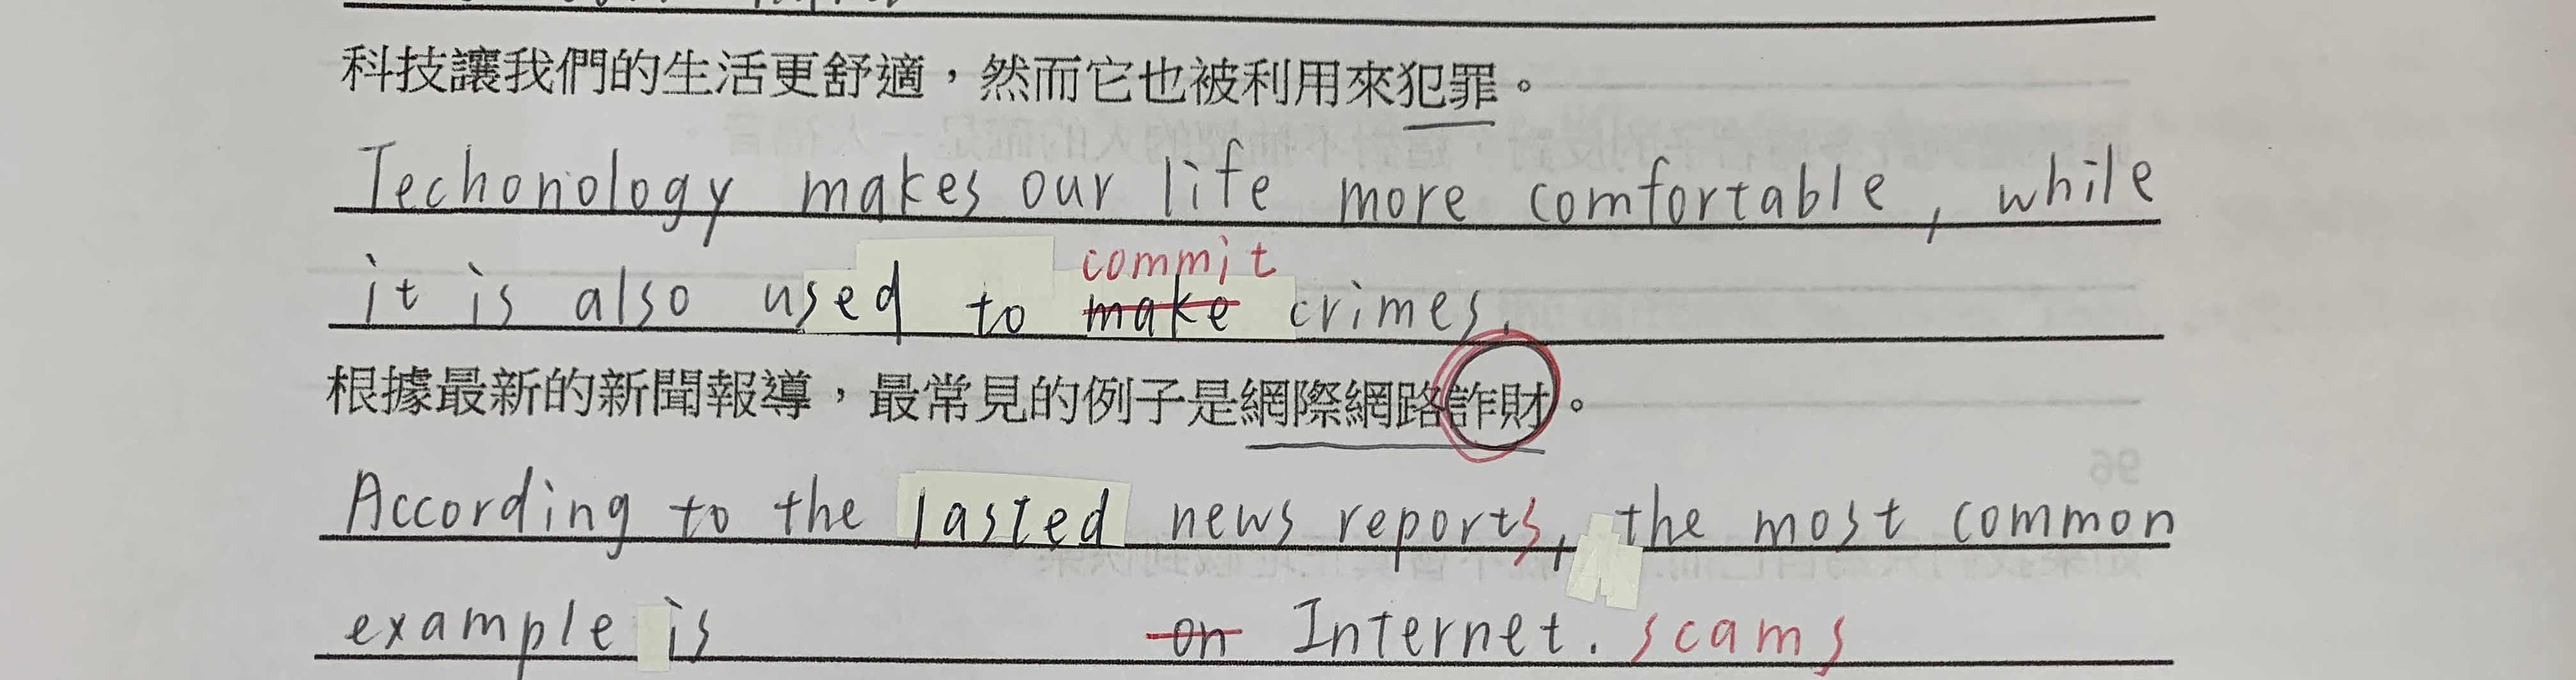 科技讓我們的生活更舒適，然而它也被利用來犯罪。
Techonology makes our life more comfortable, while
commit
it is also used to make crimes.
根據最新的新聞報導，最常見的例子是網際網路詐財。
According to the lasted news reports, the most common
example is on Internet. scams